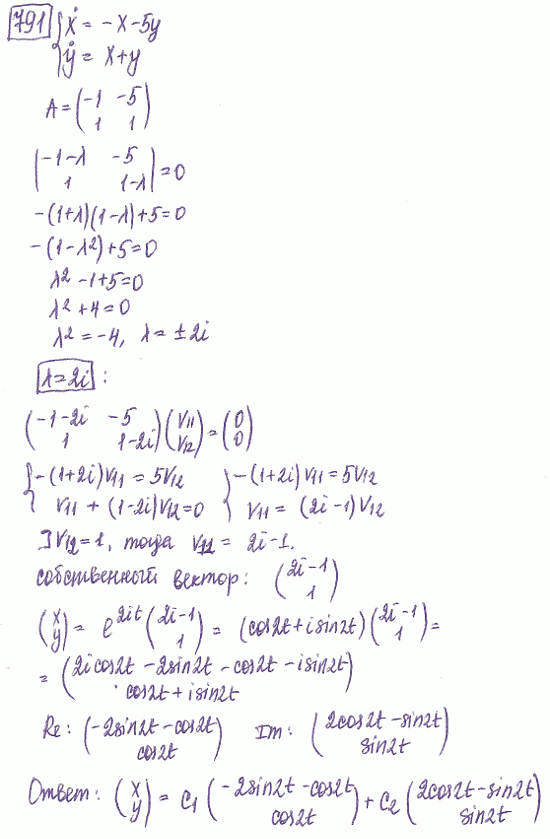 791 { ẋ = -x-5y
{ ẏ = x+y
A = (-1 -5
1 1)
|-1-λ -5
1 1-λ| = 0
-(1+λ)(1-λ)+5=0
-(1-λ²)+5=0
λ²-1+5=0
λ²+4=0
λ²=-4, λ=±2i
λ=2i :
(-1-2i -5
1 1-2i) (V11
V12) = (0
0)
{ -(1+2i)V11 = 5V12 { -(1+2i)V11 = 5V12
{ V11 + (1-2i)V12=0 { V11 = (2i-1)V12
∃ V12=1, тогда V11 = 2i-1.
собственный вектор: (2i-1
1)
(x
y) = e^{2it} (2i-1
1) = (cos2t+isin2t) (2i-1
1) =
= (2icos2t -2sin2t -cos2t -isin2t
cos2t+isin2t)
Re: (-2sin2t-cos2t
cos2t) Im: (2cos2t-sin2t
sin2t)
Ответ: (x
y) = C1 (-2sin2t-cos2t
cos2t) + C2 (2cos2t-sin2t
sin2t)